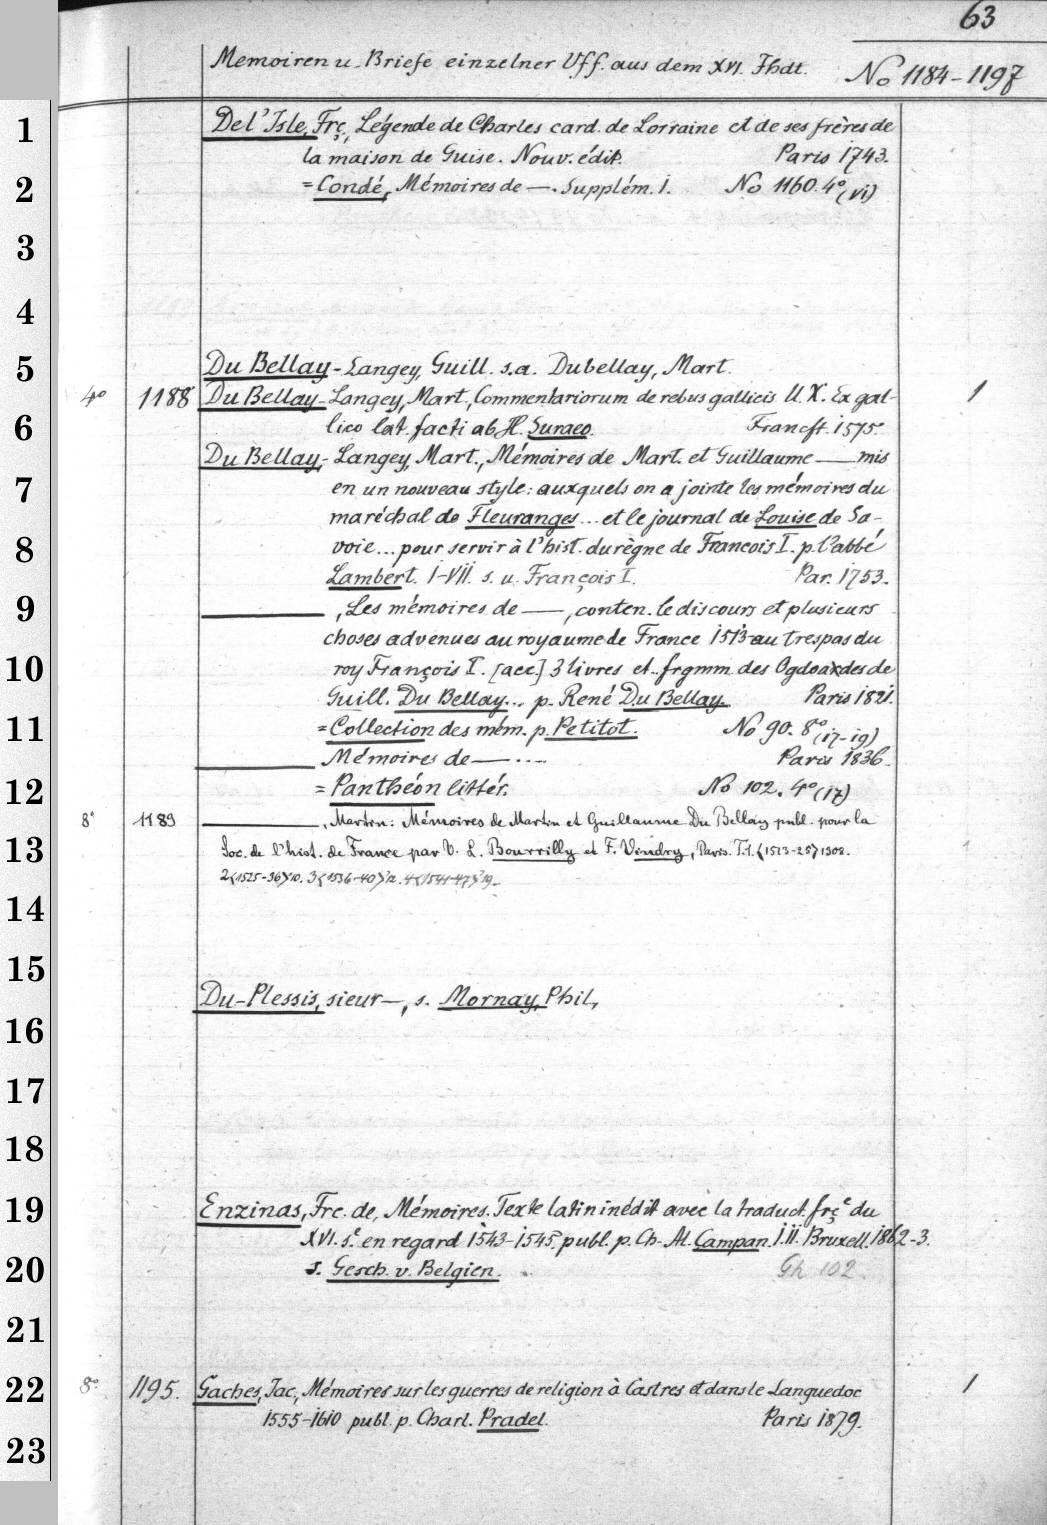 63
Memoiren u. Briefe einzelner Vff. aus dem XVI. Jhdt. No 1184-1197
1 De l'Isle, Frç, Légende de Charles card. de Lorraine et de ses frères de
la maison de Guise. Nouv. édit. Paris 1743.
2 = Condé, Mémoires de —. Supplém. I. No 1160. 4° (VI)
3
4
5 Du Bellay-Langey, Guill. s. a. Dubellay, Mart.
4° 1188 Du Bellay-Langey, Mart., Commentariorum de rebus gallicis ll. X. Ex gal- 1
6 lico lat. facti ab H. Suraeo. Francft. 1575.
Du Bellay-Langey, Mart., Mémoires de Mart. et Guillaume — mis
7 en un nouveau style: auxquels on a jointe les mémoires du
maréchal de Fleuranges... et le journal de Louise de Sa-
8 voie... pour servir à l'hist. du règne de Francois I. p. l'abbé
Lambert. I-VII. s. u. François I. Par. 1753.
9 —, Les mémoires de —, conten. le discours et plusieurs
choses advenues au royaume de France 1513 au trespas du
10 roy François I. [acc] 3 livres et frgmm des Ogdoades de
Guill. Du Bellay... p. René Du Bellay. Paris 1821.
11 = Collection des mém. p. Petitot. No 90. 8° (17-19)
— Mémoires de —.... Paris 1836.
12 = Panthéon littér. No 102. 4° (17)
8° 1189 —, Martin: Mémoires de Martin et Guillaume Du Bellay publ. pour la
13 Soc. de l'hist. de France par V. L. Bourrilly et F. Vindry, Paris. T. 1. <1513-25> 1908. 1
2 <1525-36> 10. 3 <1536-40> 12. 4 <1541-47> 19.
14
15
Du-Plessis, sieur —, s. Mornay, Phil,
16
17
18
19 Enzinas, Frc. de, Mémoires. Texte latin inédit avec la traduct. frçe du
XVI. s.e en regard 1543-1545. publ. p. Ch. Al. Campan. I. II. Bruxell. 1862-3.
20 s. Gesch. v. Belgien. Gh 102
21
22 8° 1195. Gaches, Jac, Mémoires sur les guerres de religion à Castres et dans le Languedoc 1
1555-1610 publ. p. Charl. Pradel. Paris 1879.
23